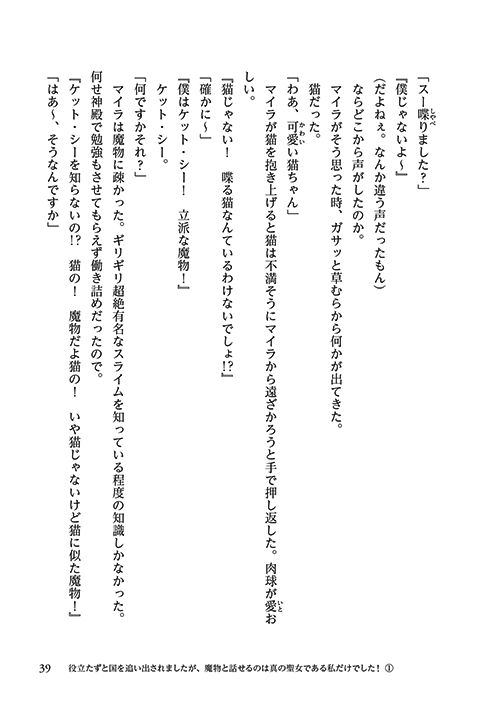 「スー喋りました？」
『僕じゃないよ～』
（だよねぇ。なんか違う声だったもん）
ならどこから声がしたのか。
マイラがそう思った時、ガサッと草むらから何かが出てきた。
猫だった。
「わあ、可愛い猫ちゃん」
マイラが猫を抱き上げると猫は不満そうにマイラから遠ざかろうと手で押し返した。肉球が愛お
しい。
『猫じゃない！　喋る猫なんているわけないでしょ!?』
「確かに～」
『僕はケット・シー！　立派な魔物！』
ケット・シー。
「何ですかそれ？」
マイラは魔物に疎かった。ギリギリ超絶有名なスライムを知っている程度の知識しかなかった。
何せ神殿で勉強もさせてもらえず働き詰めだったので。
『ケット・シーを知らないの!?　猫の！　魔物だよ猫の！　いや猫じゃないけど猫に似た魔物！』
「はあ～、そうなんですか」
39　役立たずと国を追い出されましたが、魔物と話せるのは真の聖女である私だけでした！①